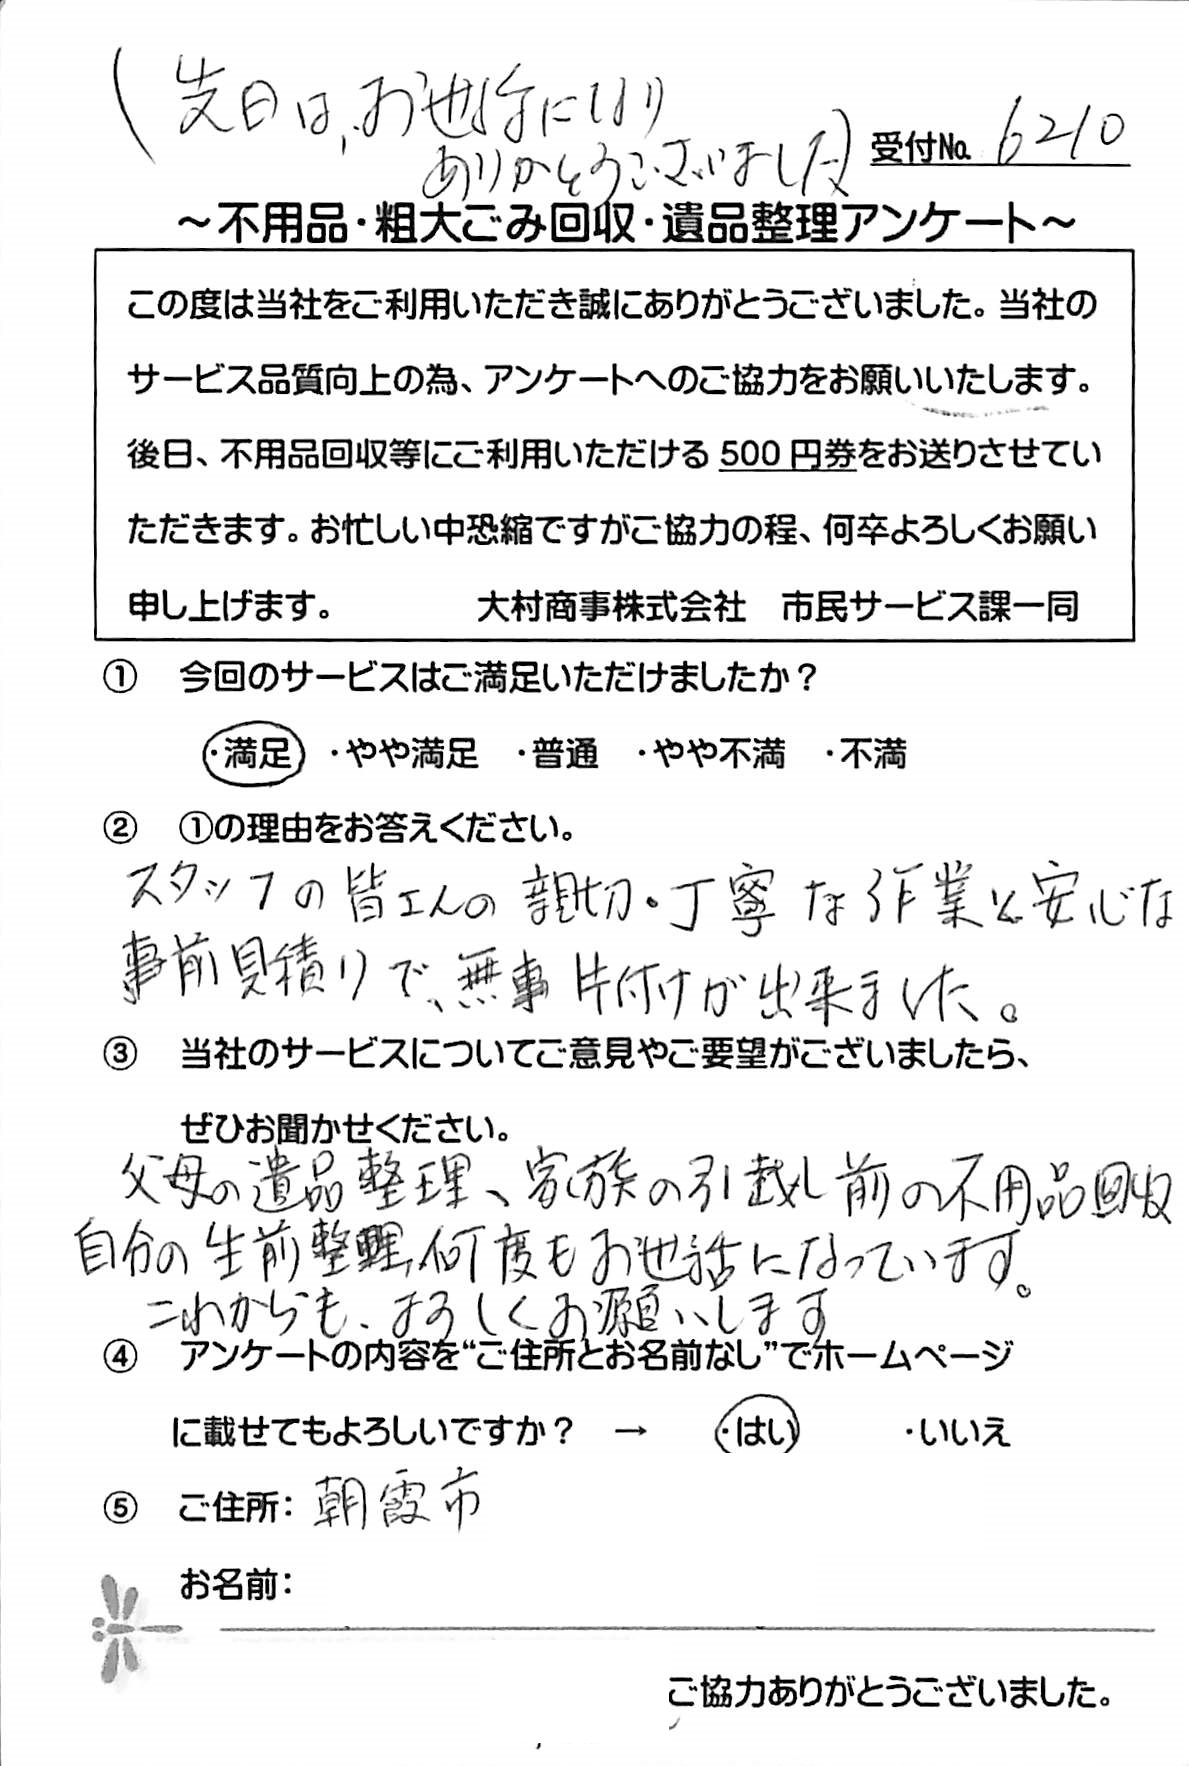 (先日は、お世話になり
ありがとうございました)
受付No. 6210
～不用品・粗大ごみ回収・遺品整理アンケート～
この度は当社をご利用いただき誠にありがとうございました。当社の
サービス品質向上の為、アンケートへのご協力をお願いいたします。
後日、不用品回収等にご利用いただける 500 円券をお送りさせてい
ただきます。お忙しい中恐縮ですがご協力の程、何卒よろしくお願い
申し上げます。 大村商事株式会社 市民サービス課一同
① 今回のサービスはご満足いただけましたか？
・満足 ・やや満足 ・普通 ・やや不満 ・不満
② ①の理由をお答えください。
スタッフの皆さんの親切・丁寧な作業と安心な
事前見積りで、無事片付けが出来ました。
③ 当社のサービスについてご意見やご要望がございましたら、
ぜひお聞かせください。
父母の遺品整理、家族の引越し前の不用品回収
自分の生前整理、何度もお世話になっています。
これからも、よろしくお願いします
④ アンケートの内容を“ご住所とお名前なし”でホームページ
に載せてもよろしいですか？ → ・はい ・いいえ
⑤ ご住所：朝霞市
お名前：
ご協力ありがとうございました。